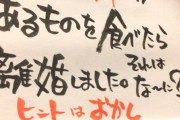 あるものを食べたら
離婚しました。それは
なーに?
ヒントはおかし